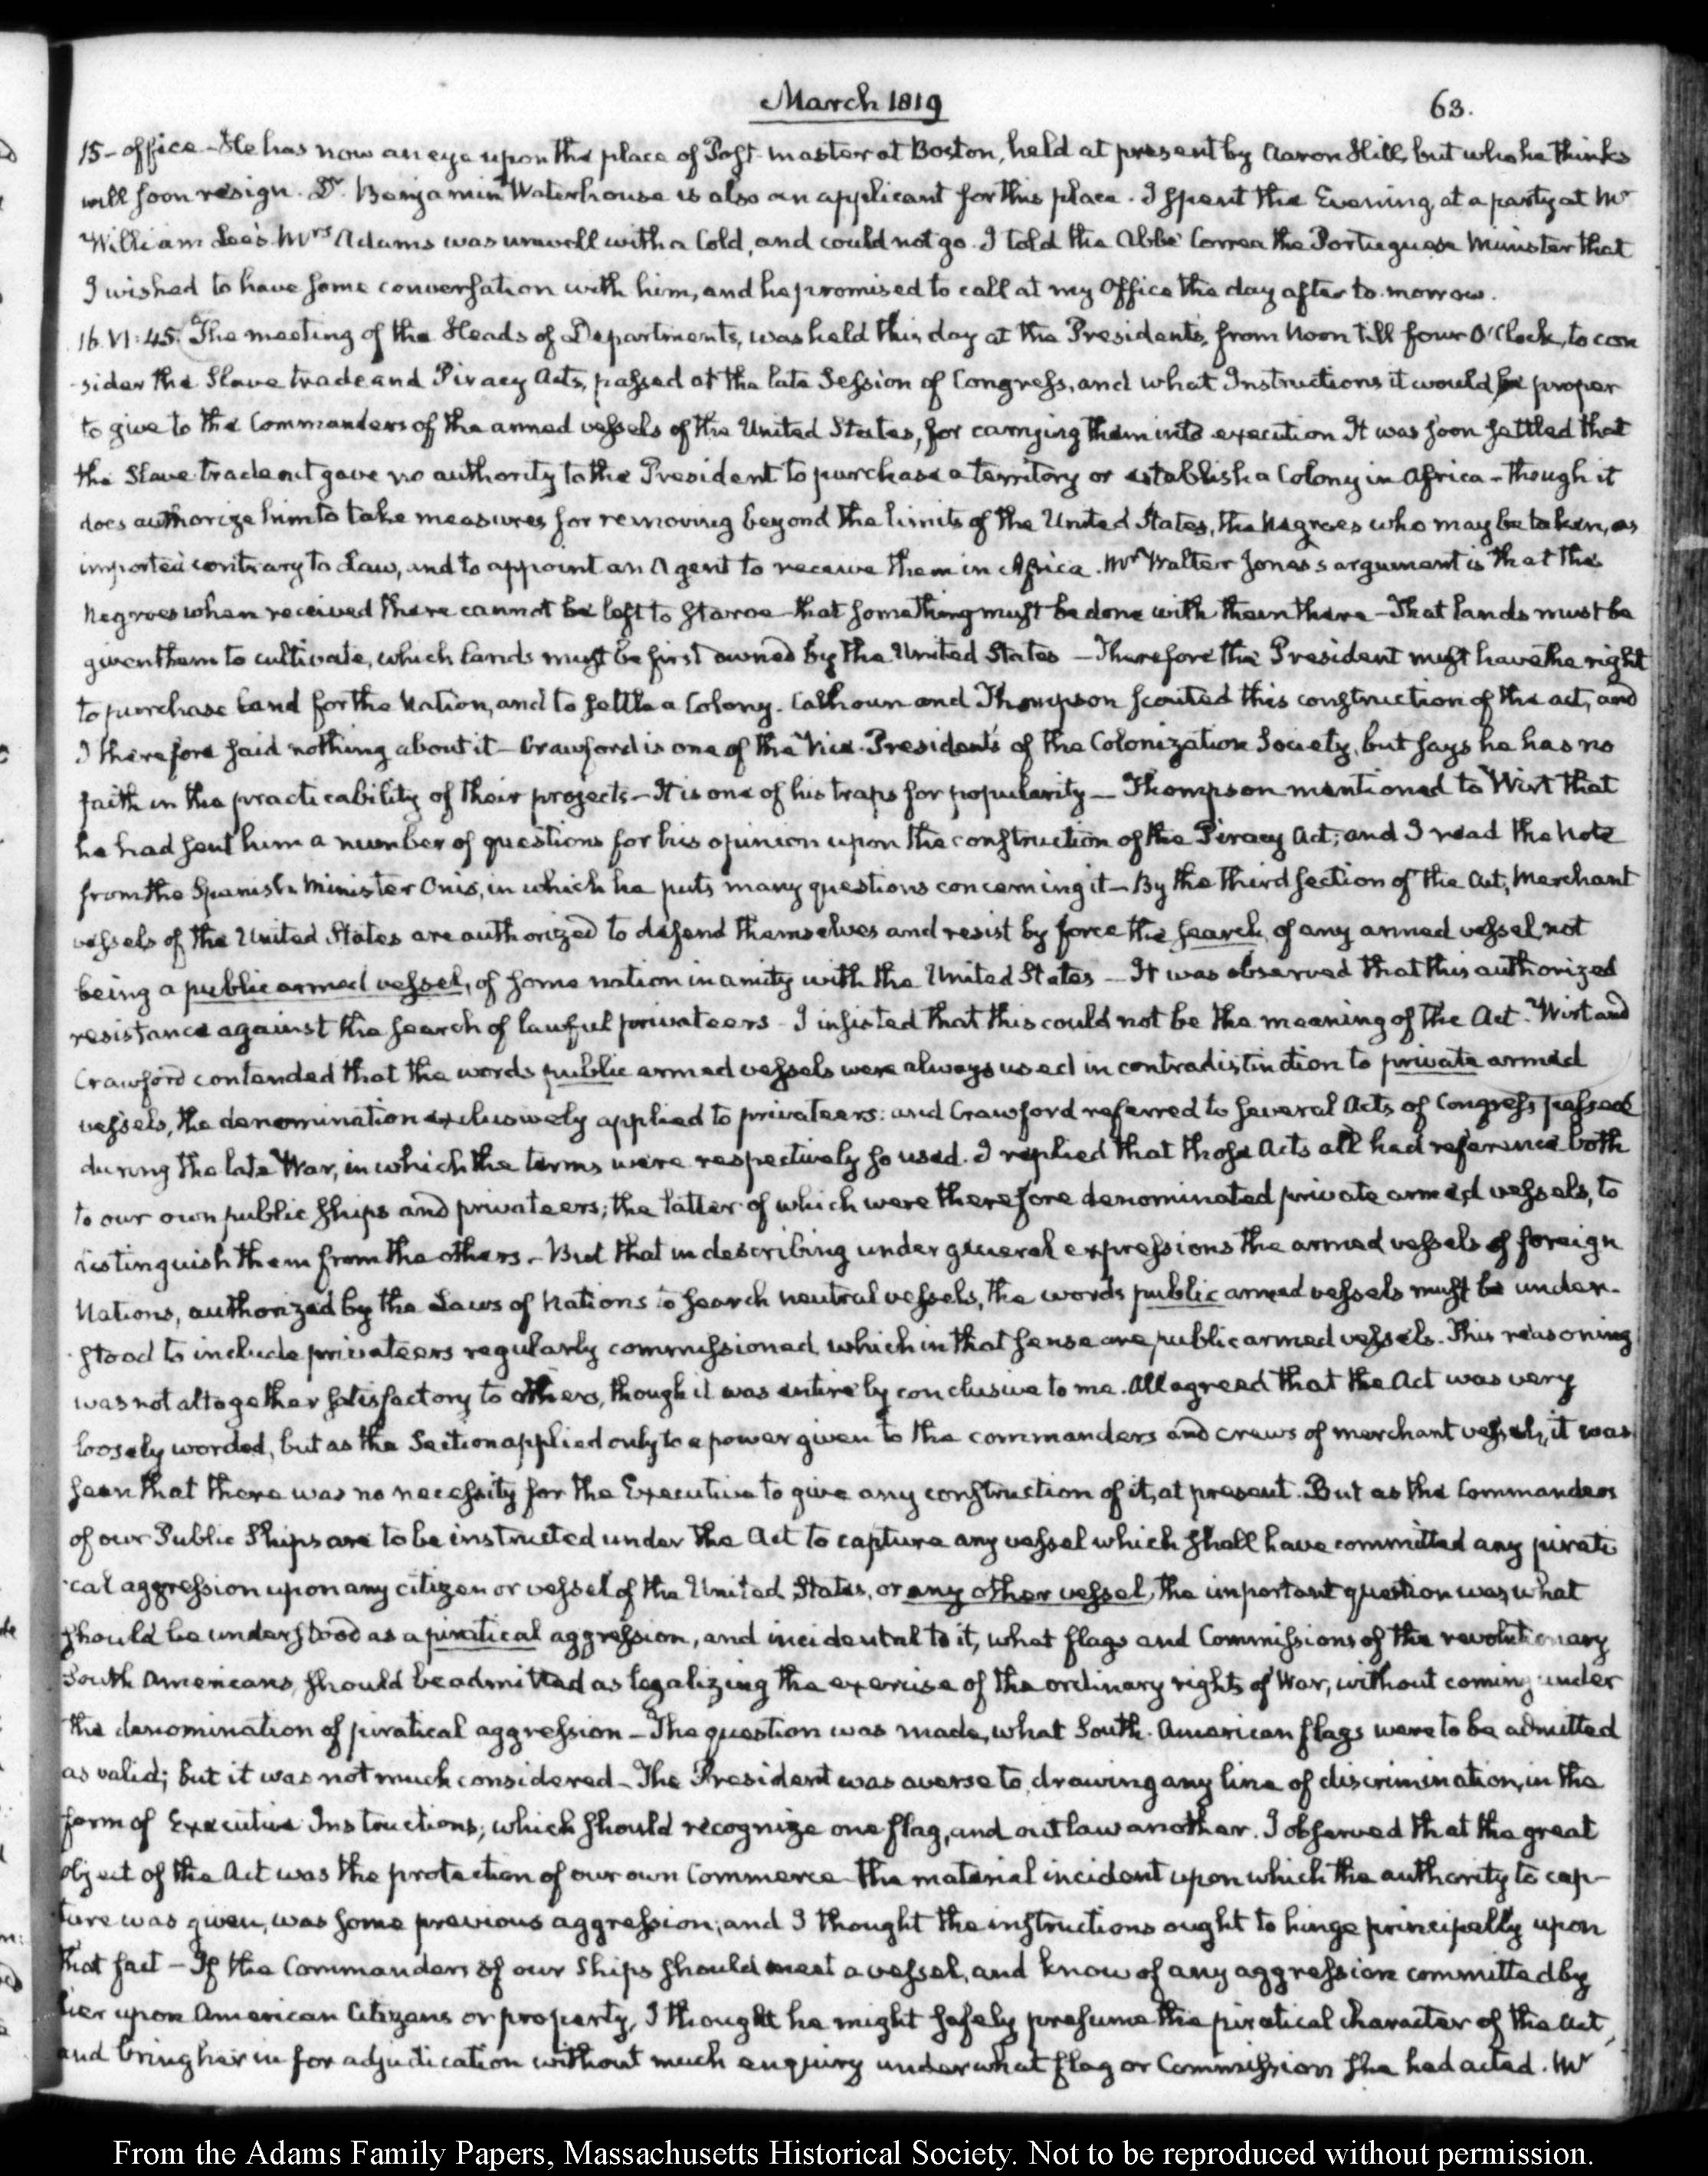 March 1819
63.
15- office - He has now an eye upon the place of Post-master at Boston, held at present by Aaron Hill, but who he thinks
will soon resign. Dr. Benjamin Waterhouse is also an applicant for this place. I spent the Evening, at a party at Mr
William Lee's. Mrs Adams was unwell with a Cold, and could not go. I told the Abbé Correa the Portuguese Minister that
I wished to have some conversation with him, and he promised to call at my Office the day after to-morrow.
16. VI:45. The meeting of the Heads of Departments, was held this day at the Presidents, from Noon till four O'Clock, to con
-sider the Slave trade and Piracy Acts, passed at the late Session of Congress, and what Instructions it would be proper
to give to the Commanders of the armed vessels of the United States, for carrying them into execution It was soon settled that
the Slave-trade act gave no authority to the President to purchase a territory or establish a Colony in Africa - though it
does authorize him to take measures for removing beyond the limits of the United States, the Negroes who may be taken, as
imported contrary to Law, and to appoint an Agent to receive them in Africa. Mr Walter Jones's argument is that the
Negroes when received there cannot be left to starve - that something must be done with them there - That lands must be
given them to cultivate, which lands must be first owned by the United States - Therefore the President must have the right
to purchase land for the Nation, and to settle a Colony. Calhoun and Thompson scouted this construction of the act, and
I therefore said nothing about it - Crawford is one of the Vice-Presidents of the Colonization Society, but says he has no
faith in the practicability of their projects - It is one of his traps for popularity - Thompson mentioned to Wirt that
he had sent him a number of questions for his opinion upon the construction of the Piracy Act; and I read the Note
from the Spanish Minister Onis, in which he puts many questions concerning it - By the third section of the Act, Merchant
vessels of the United States are authorized to defend themselves and resist by force the search, of any armed vessel, not
being a public armed vessel, of some nation in amity with the United States - It was observed that this authorized
resistance against the search of lawful privateers - I insisted that this could not be the meaning of the Act. Wirt and
Crawford contended that the words public armed vessels were always used in contradistinction to private armed
vessels, the denomination exclusively applied to privateers: and Crawford referred to several Acts of Congress passed
during the late War, in which the terms were respectively so used. I replied that those Acts all had reference both
to our own public ships and privateers; the latter of which were therefore denominated private armed vessels, to
distinguish them from the others. - But that in describing under general expressions the armed vessels of foreign
Nations, authorized by the Laws of Nations to search neutral vessels, the words public armed vessels must be under-
stood to include privateers regularly commissioned, which in that sense are public armed vessels. This reasoning
was not altogether satisfactory to others, though it was entirely conclusive to me. All agreed that the Act was very
loosely worded, but as the Section applied only to a power given to the commanders and crews of merchant vessels, it was
seen that there was no necessity for the Executive to give any construction of it, at present. But as the Commanders
of our Public Ships are to be instructed under the Act to capture any vessel which shall have committed any pirati
-cal aggression upon any citizen or vessel of the United States, or any other vessel, the important question was, what
should be understood as a piratical aggression, and incidental to it, what flags and Commissions of the revolutionary
South Americans, should be admitted as legalizing the exercise of the ordinary rights of War, without coming under
the denomination of piratical aggression - The question was made, what South-American flags were to be admitted
as valid; but it was not much considered - The President was averse to drawing any line of discrimination, in the
form of Executive Instructions; which should recognize one flag, and outlaw another. I observed that the great
object of the Act was the protection of our own Commerce - the material incident upon which the authority to cap-
ture was given, was some previous aggression, and I thought the instructions ought to hinge principally upon
that fact - If the Commanders of our Ships should meet a vessel, and know of any aggression committed by
her upon American Citizens or property, I thought he might safely presume the piratical character of the Act,
and bring her in for adjudication without much enquiry under what flag or Commission she had acted. Mr
From the Adams Family Papers, Massachusetts Historical Society. Not to be reproduced without permission.